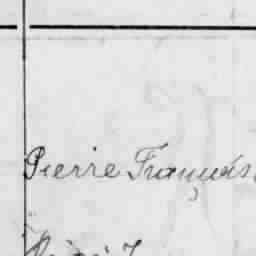 Pierre François